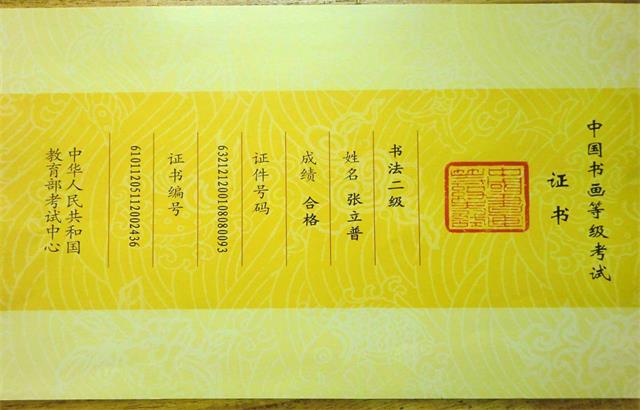 中国书画等级考试
证书
书法二级
姓名 张立普
成绩 合格
证件号码
632121200108080093
证书编号
61011205112002436
中华人民共和国
教育部考试中心